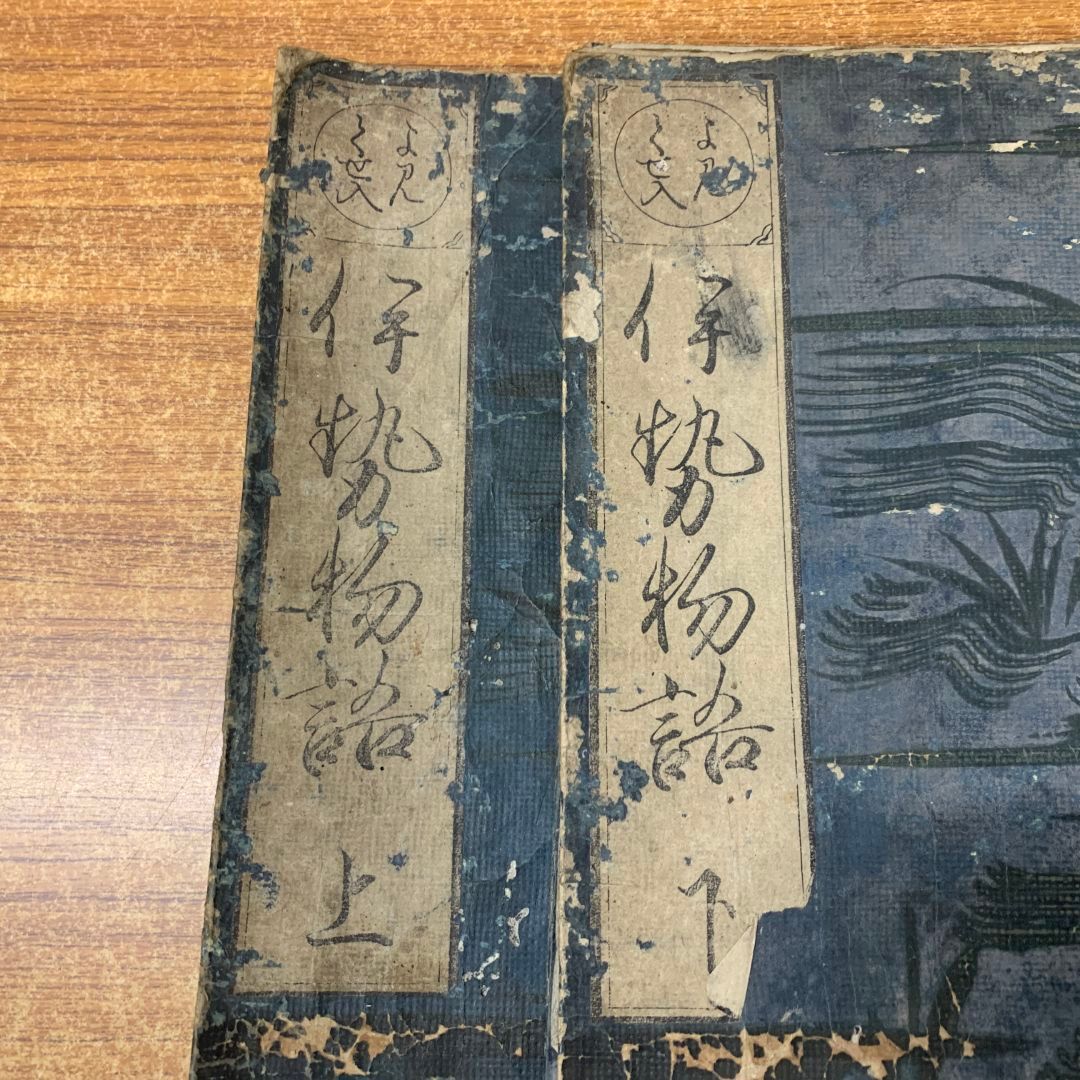 よみ
くせ入
伊勢物語 上
よみ
くせ入
伊勢物語 下